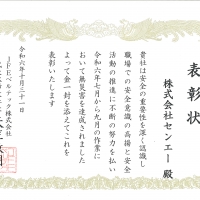 表彰状
株式会社センエー 殿
貴社は安全の重要性を深く認識し
職場での安全意識の高揚と安全
活動の推進に不断の努力を払い
令和六年七月から九月の作業に
おいて無災害を達成されました
よって金一封を添えてこれを
表彰いたします
令和六年十月三十一日
JFEベルテック株式会社